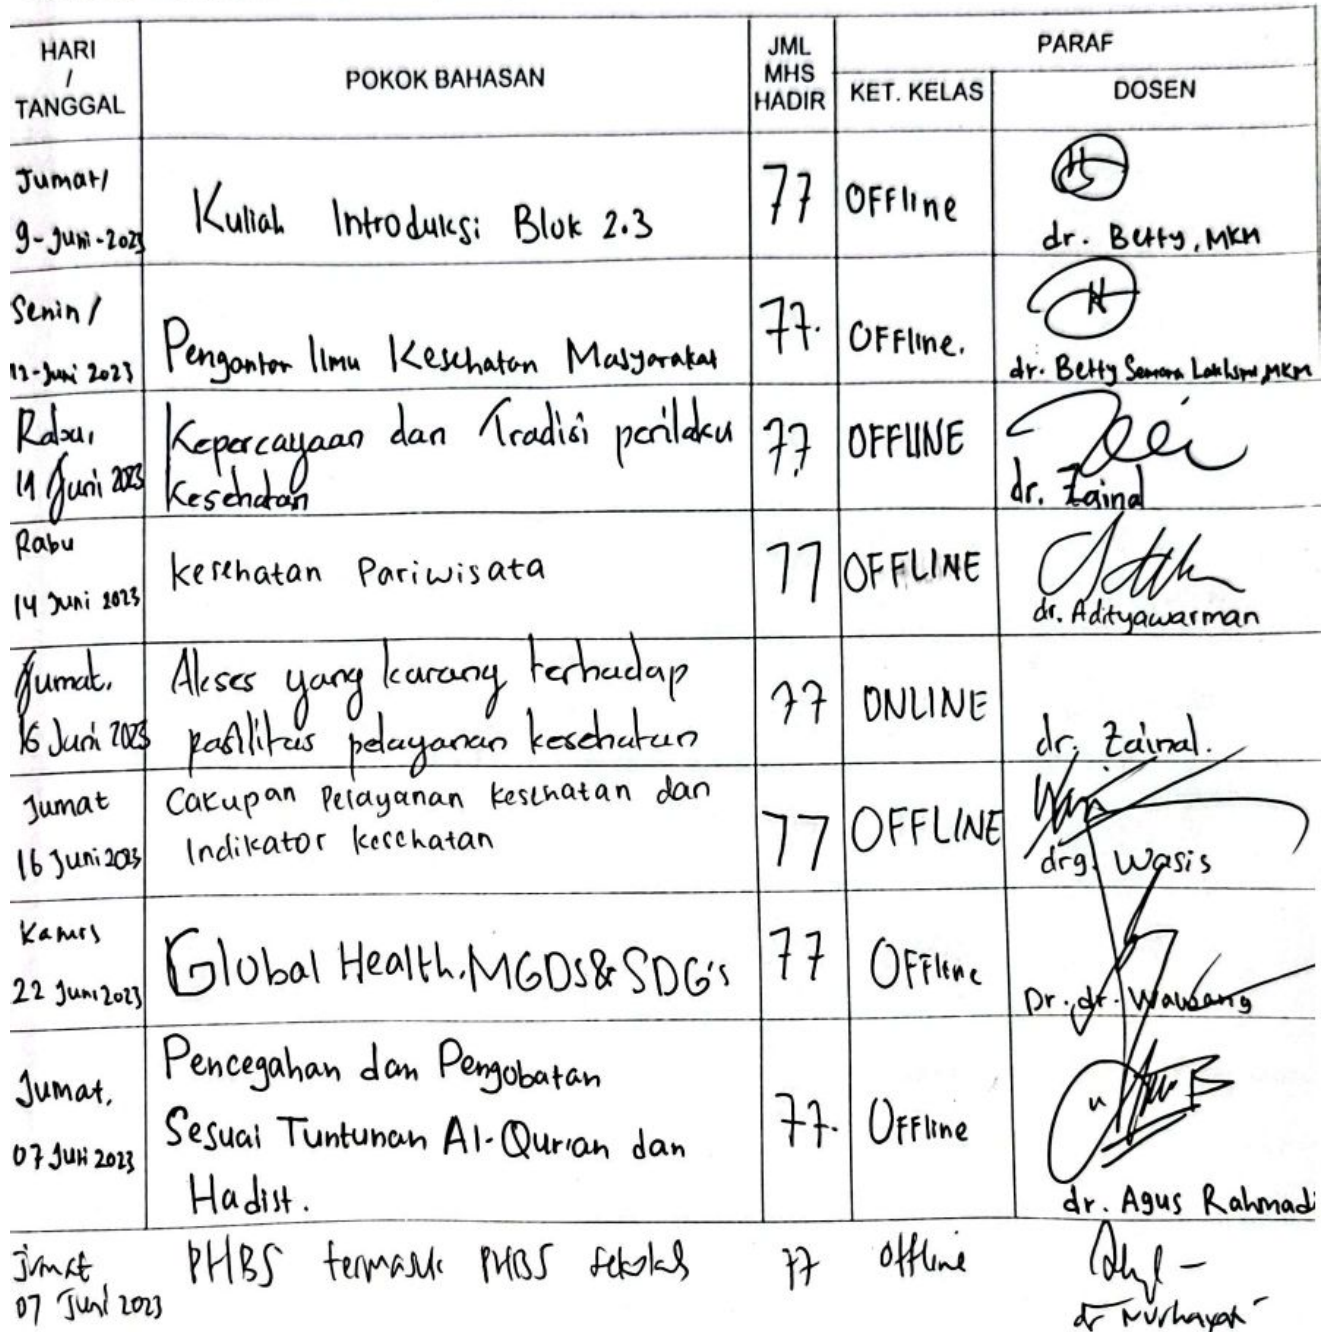 HARI / TANGGAL
POKOK BAHASAN
JML MHS HADIR
PARAF
KET. KELAS
DOSEN
Jumat/ 9-Juni-2023
Kuliah Introduksi Blok 2.3
77
OFFline
dr. Betty, MKM
Senin / 12-Juni 2023
Pengantar Ilmu Kesehatan Masyarakat
77.
OFFline.
dr. Betty Semara Lakhsmi, MKM
Rabu, 14 Juni 2023
Kepercayaan dan Tradisi perilaku
Kesehatan
77
OFFLINE
dr. Zainal
Rabu
14 Juni 2023
kesehatan Pariwisata
77
OFFLINE
dr. Adityawarman
Jumat,
16 Juni 2023
Akses yang karang terhadap
pasilitas pelayanan kesehatan
77
ONLINE
dr. Zainal.
Jumat
16 Juni 2023
Cakupan Pelayanan kesehatan dan
Indikator kesehatan
77
OFFLINE
drg. Wasis
Kamis
22 Juni 2023
Global Health, MGDS & SDG's
77
OFFline
Dr. dr.
Jumat,
07 Juli 2023
Pencegahan dan Pengobatan
Sesuai Tuntunan Al-Qur'an dan
Hadist.
77.
Offline
dr. Agus Rahmadi
jumat
07 Juni 2023
PHBS termasuk PHBS sekolah
77
offline
dr Nurhayati